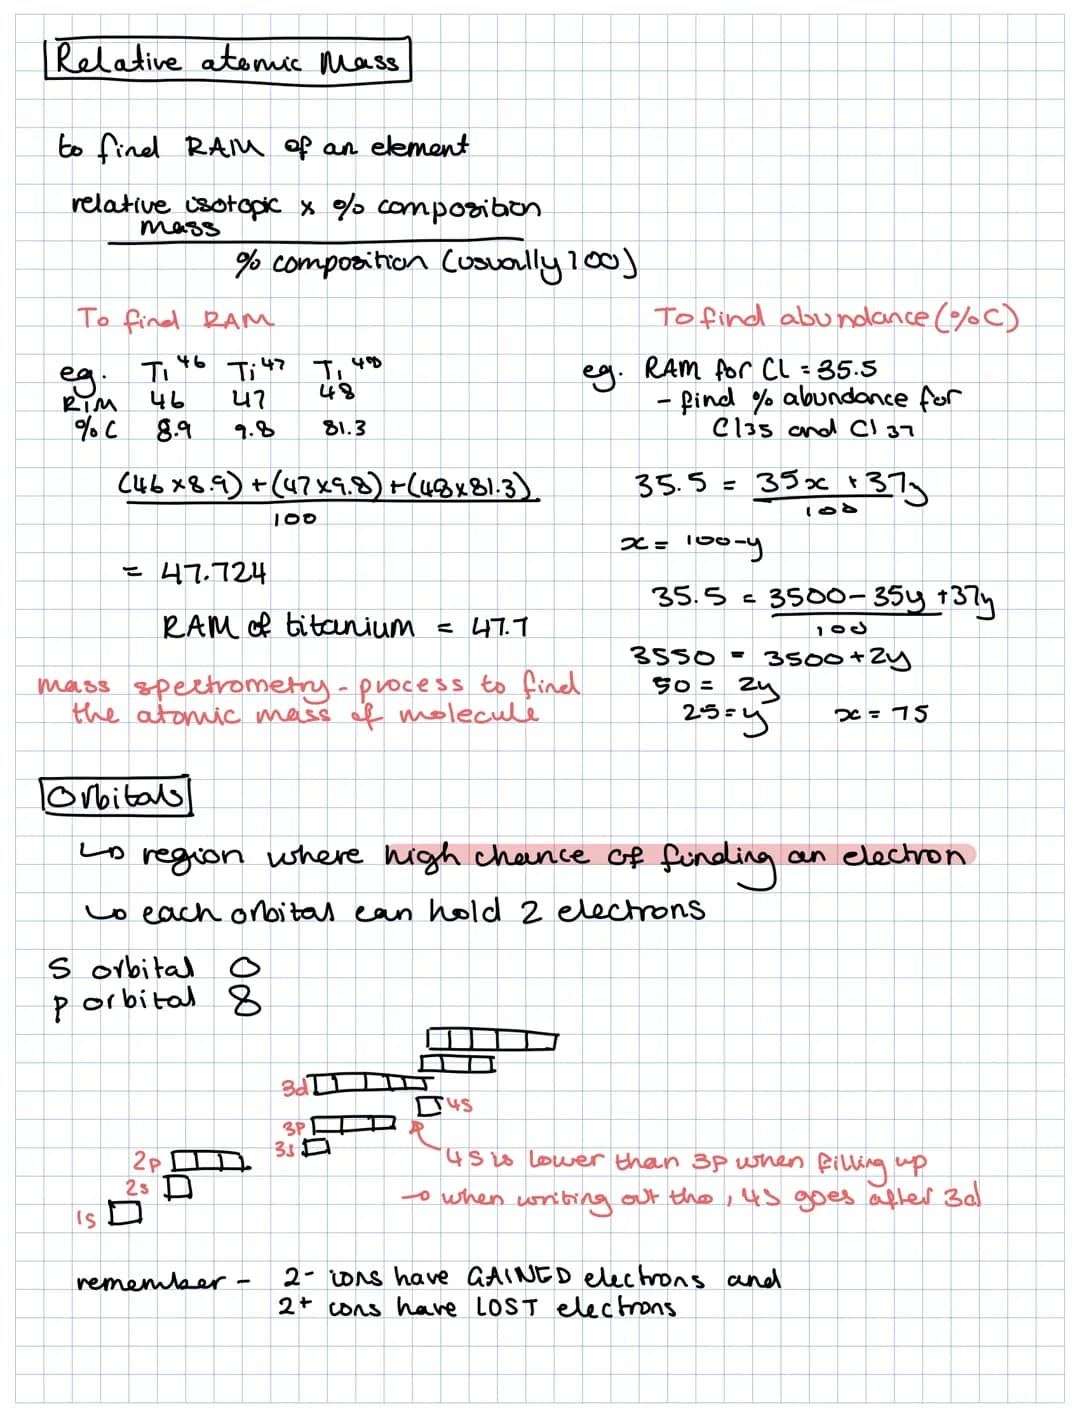 Relative atomic Mass
to find RAM of an element
relative isotopic x % composition
mass
% composition (usually 100)
To find RAM
eg. Ti 46 Ti 47 Ti 48
RIM 46 47 48
%C 8.9 9.8 81.3
(46 x 8.9) + (47 x 9.8) + (48 x 81.3)
100
= 47.724
RAM of titanium = 47.7
mass spectrometry - process to find
the atomic mass of molecule
To find abundance (%C)
eg. RAM for CL = 35.5
- find % abundance for
Cl35 and Cl 37
35.5 = 35x + 37y
100
x = 100-y
35.5 = 3500 - 35y + 37y
100
3550 = 3500 + 2y
50 = 2y
25 = y x = 75
Orbitals
↳ region where high chance of finding an electron
↳ each orbital can hold 2 electrons
s orbital
p orbital
3d
4s
3p
3s
2p
2s
1s
4s is lower than 3p when filling up
→ when writing out tho, 4s goes after 3d
remember - 2- ions have GAINED electrons and
2+ ions have LOST electrons